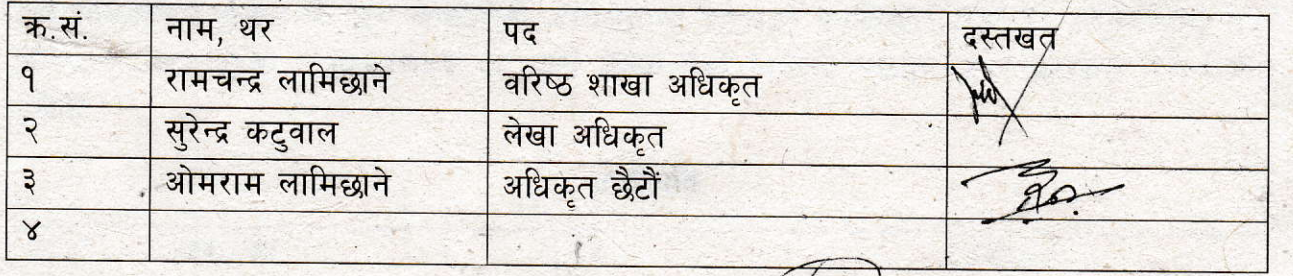 क्र.सं. नाम, थर पद दस्तखत
१ रामचन्द्र लामिछाने वरिष्ठ शाखा अधिकृत
२ सुरेन्द्र कटुवाल लेखा अधिकृत
३ ओमराम लामिछाने अधिकृत छैटौं
४